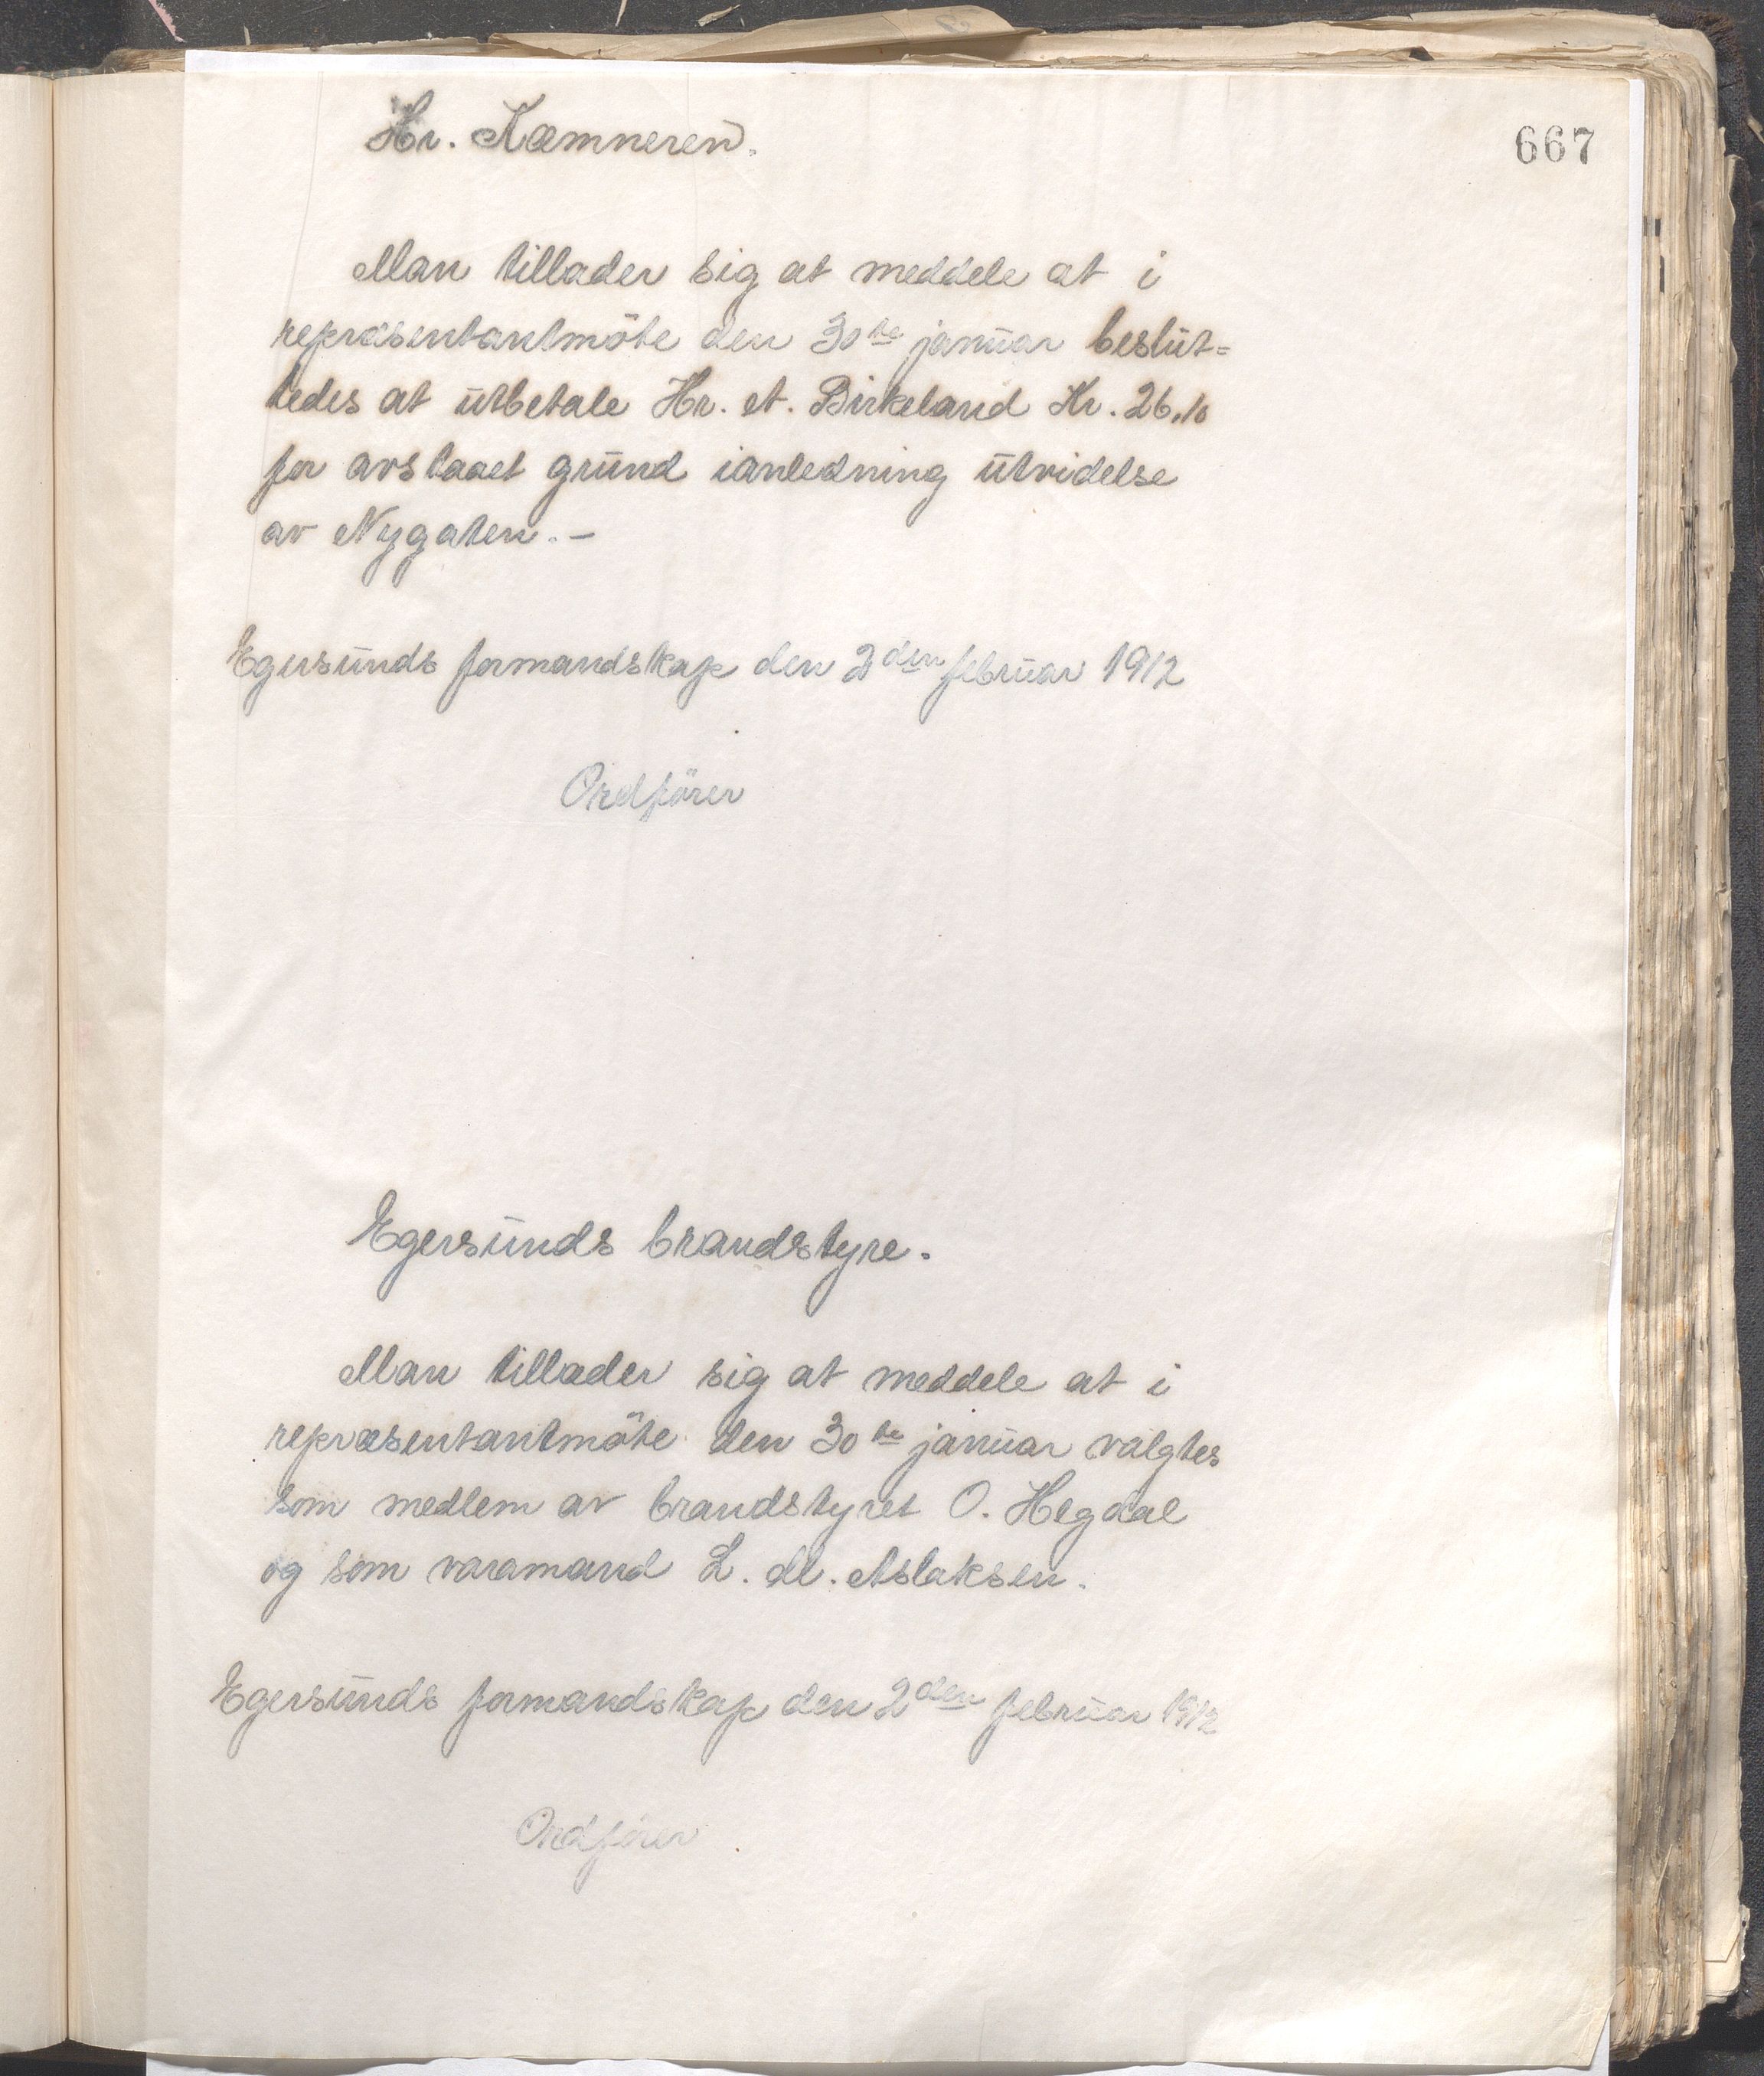 667
Hr. Kæmneren.
Man tillader sig at meddele at i
repræsentantmöte den 30te januar beslut=
tedes at utbetale Hr. A. Birkeland Kr. 26.10
for avstaaet grund ianledning utvidelse
av Nygaten. –
Egersunds formandskap den 2den februar 1912
Ordförer
Egersunds brandstyre.
Man tillader sig at meddele at i
repræsentantmöte den 30te januar valgtes
som medlem av brandstyret O. Hegdal
og som varamand L. M. Aslaksen.
Egersunds formandskap den 2den februar 1912
Ordförer